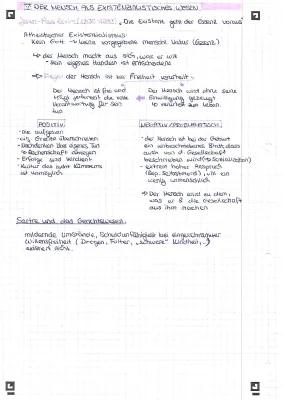 V DER MENSCH ALS EXISTENZIALISTISCHES WESEN
Jean-Paul Sartre (1905-1980): „Die Existenz geht der Essenz voraus"
Atheistischer Existenzialismus:
Kein Gott → keine vorgegebene menschl. Natur (Essenz)
↳ der Mensch macht aus sich, was er will
→ sein eigenes Handeln ist entscheidend
↳ Folge: der Mensch ist zur Freiheit verurteilt
Der Mensch ist frei und
trägt jederzeit die volle
Verantwortung für sein
tun
Der Mensch wird ohne seine
Einwilligung gezeugt
↳ verurteilt zum Leben
POSITIV
- nie aufgeben
- eig. Grenzen überschreiten
- Nachdenken über eigenes Tun
↳ Rechenschaft ablegen
- Erfolge sind verdient
- Kultur des sich kümmerns
ist womöglich
NEGATIV/PROBLEMATISCH
- der Mensch ist bei der Geburt
ein unbeschriebenes Blatt, dass
auch von d. Gesellschaft
beschrieben wird (→ Sozialisation)
- extrem hoher Anspruch
(Bsp. Selbstmord), oft ein
wenig unmenschlich
↳ Der Mensch wird zu dem,
was er & die Gesellschaft
aus ihm machen
Sartre und das Gerichtswesen
mildernde Umstände, Schuldunfähigkeit bei eingeschränkter
Willensfreiheit (Drogen, Folter, „schwere" Kindheit,...)
existiert nicht.